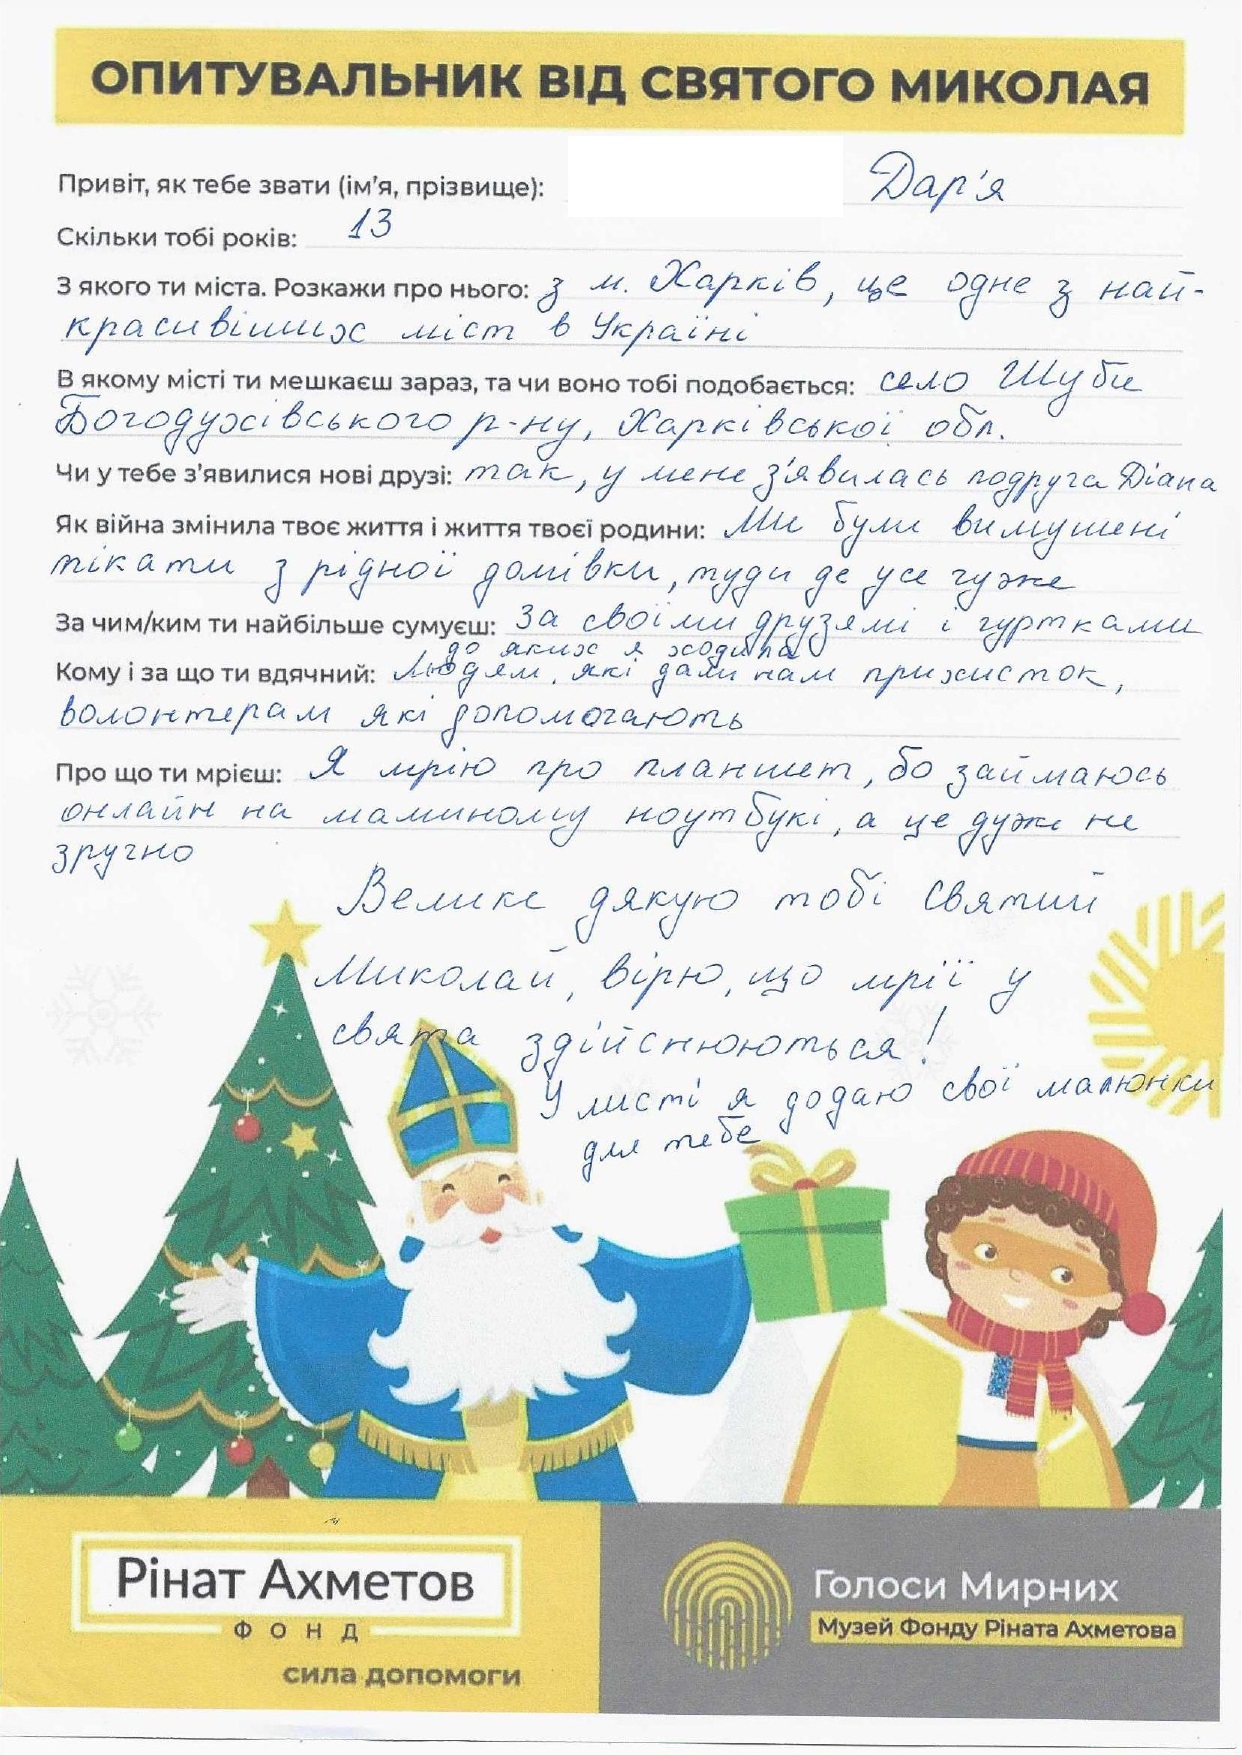 ОПИТУВАЛЬНИК ВІД СВЯТОГО МИКОЛАЯ
Привіт, як тебе звати (ім'я, прізвище): Дар'я
Скільки тобі років: 13
З якого ти міста. Розкажи про нього: з м. Харків, це одне з най-
красивіших міст в Україні
В якому місті ти мешкаєш зараз, та чи воно тобі подобається: село Шуби
Богодухівського р-ну, Харківської обл.
Чи у тебе з'явилися нові друзі: так, у мене з'явилась подруга Діана
Як війна змінила твоє життя і життя твоєї родини: Ми були вимушені
тікати з рідної домівки, туди де усе чуже
За чим/ким ти найбільше сумуєш: За своїми друзямі і гуртками
до яких я ходила
Кому і за що ти вдячний: Людям, які дали нам прихисток,
волонтерам які допомогають
Про що ти мрієш: Я мрію про планшет, бо займаюсь
онлайн на маминому ноутбукі, а це дуже не
зручно
Велике дякую тобі Святий
Миколай, вірю, що мрії у
свята здійснюються!
У листі я додаю свої малюнки
для тебе
Рінат Ахметов
ФОНД
сила допомоги
Голоси Мирних
Музей Фонду Ріната Ахметова